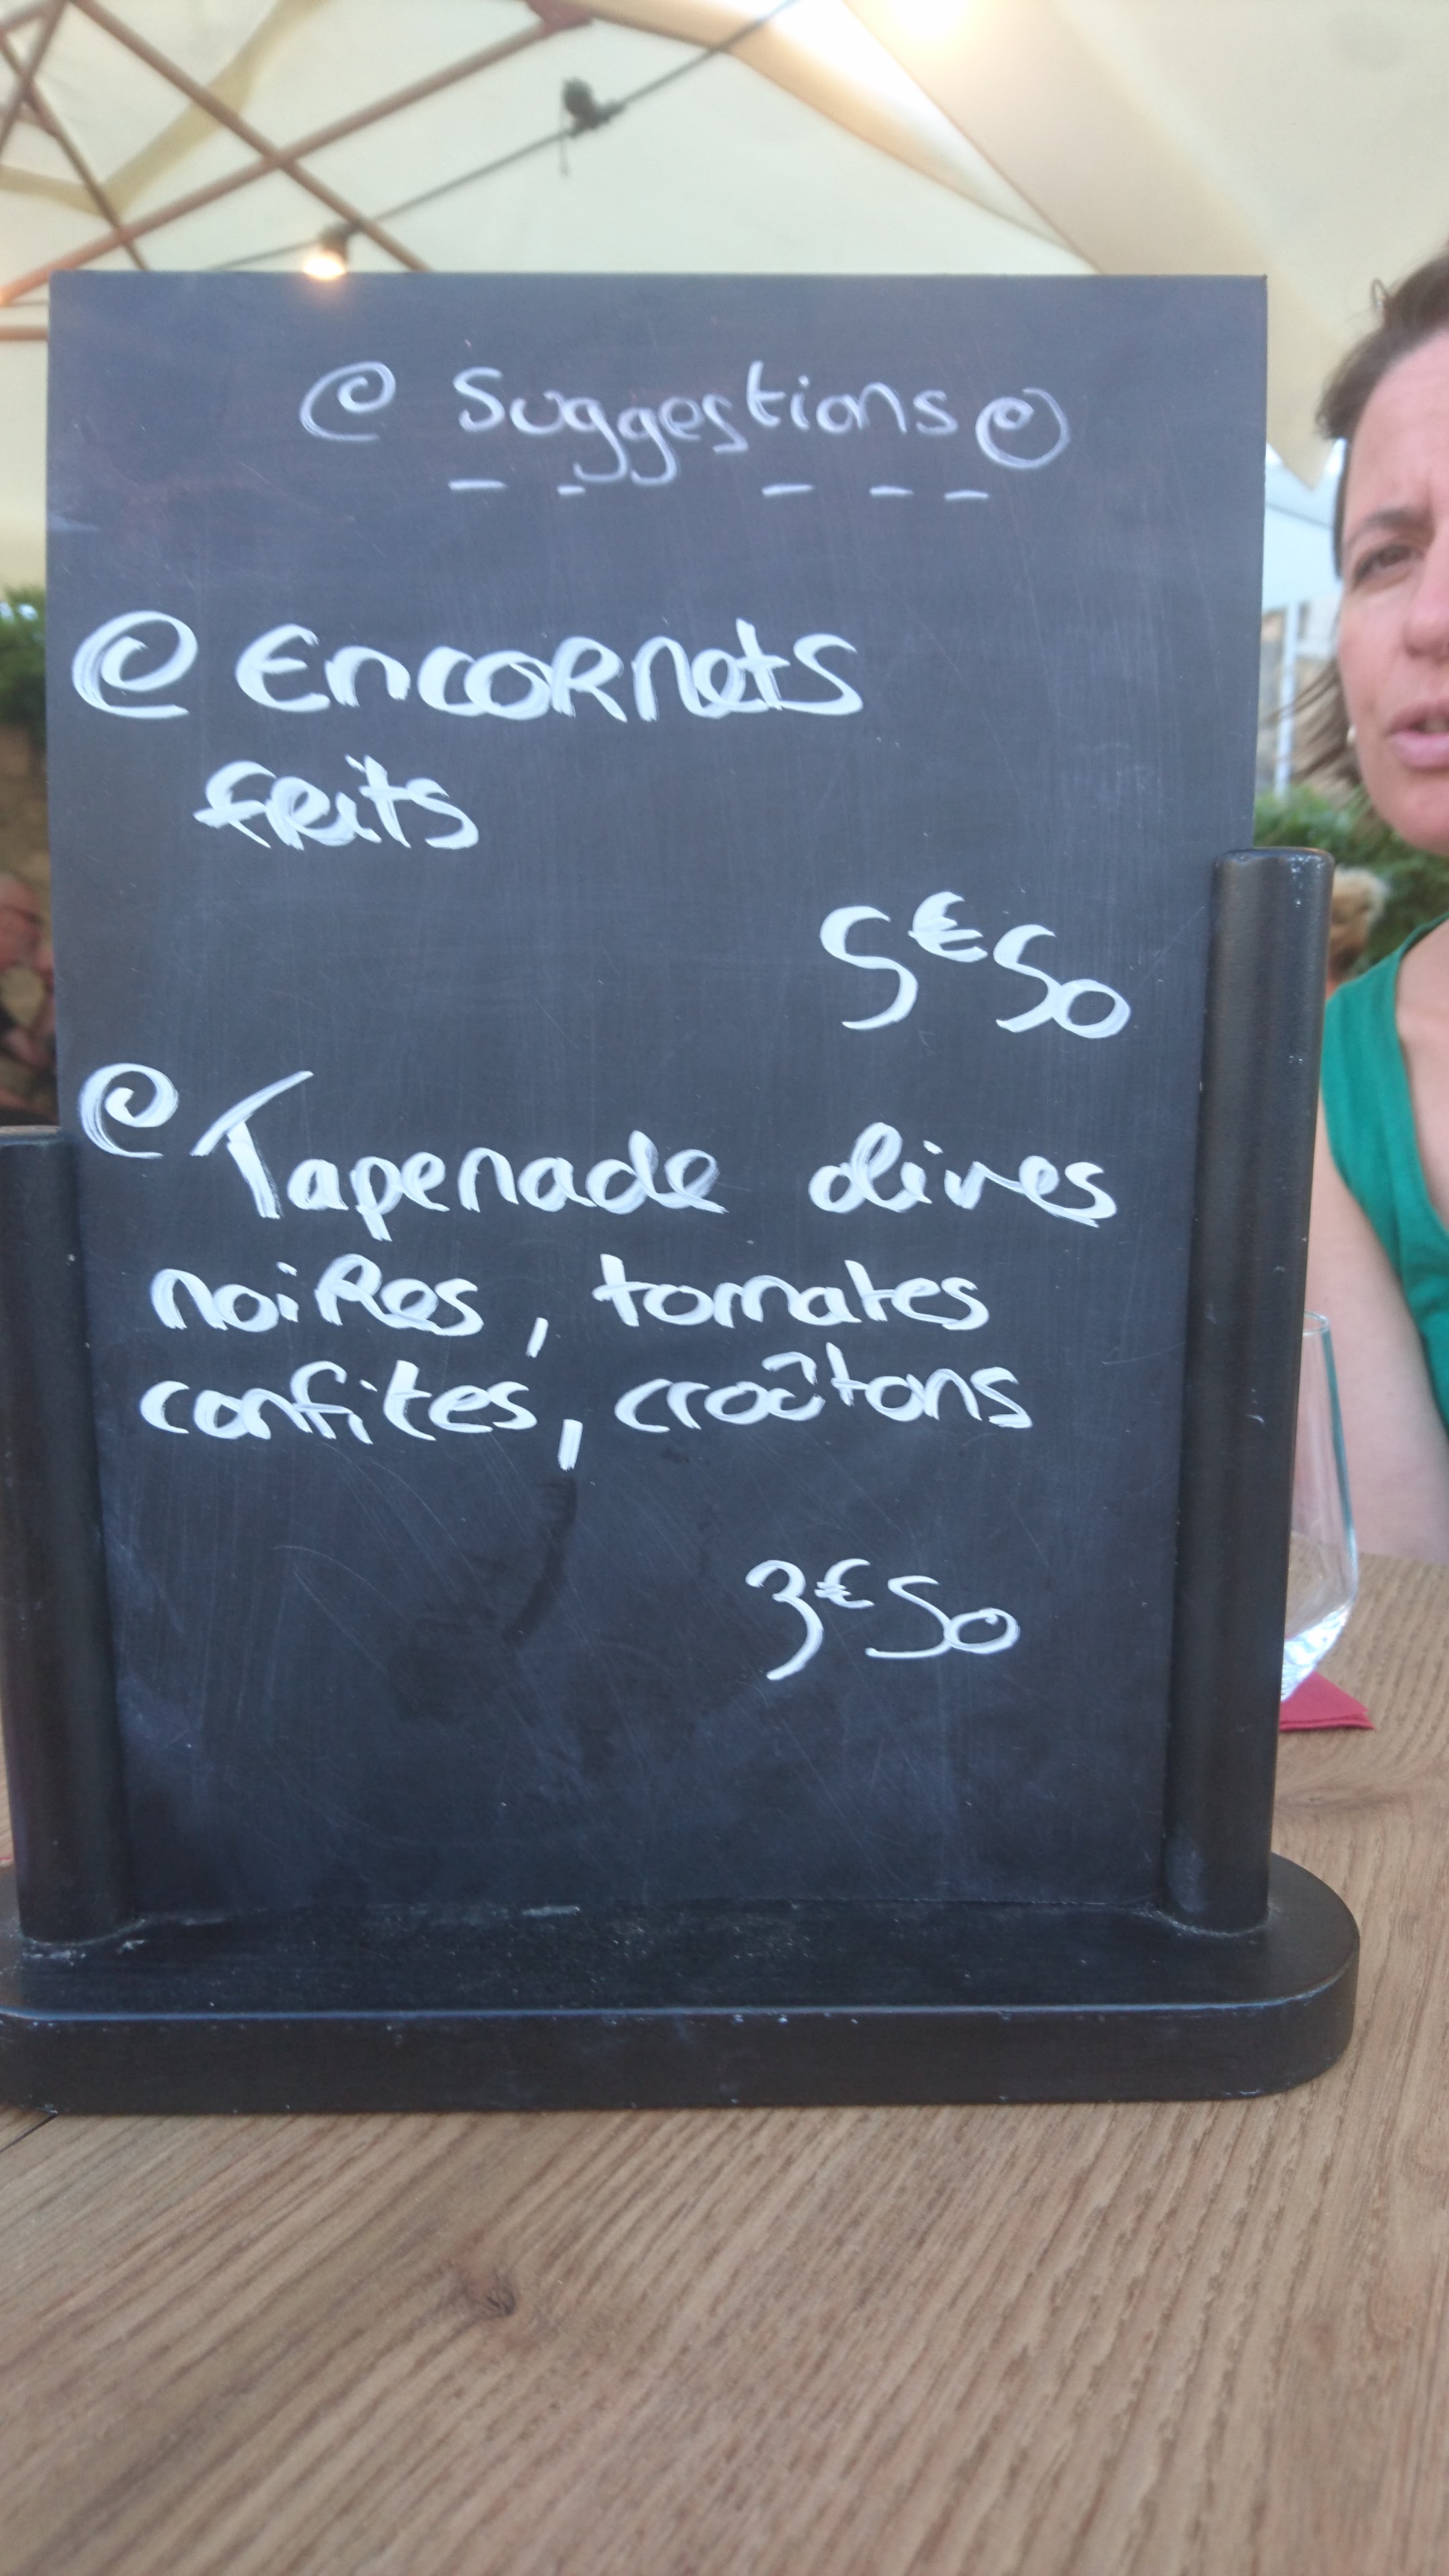 Suggestions
Encornets
frits
5€50
Tapenade olives
noires, tomates
confites, croûtons
3€50